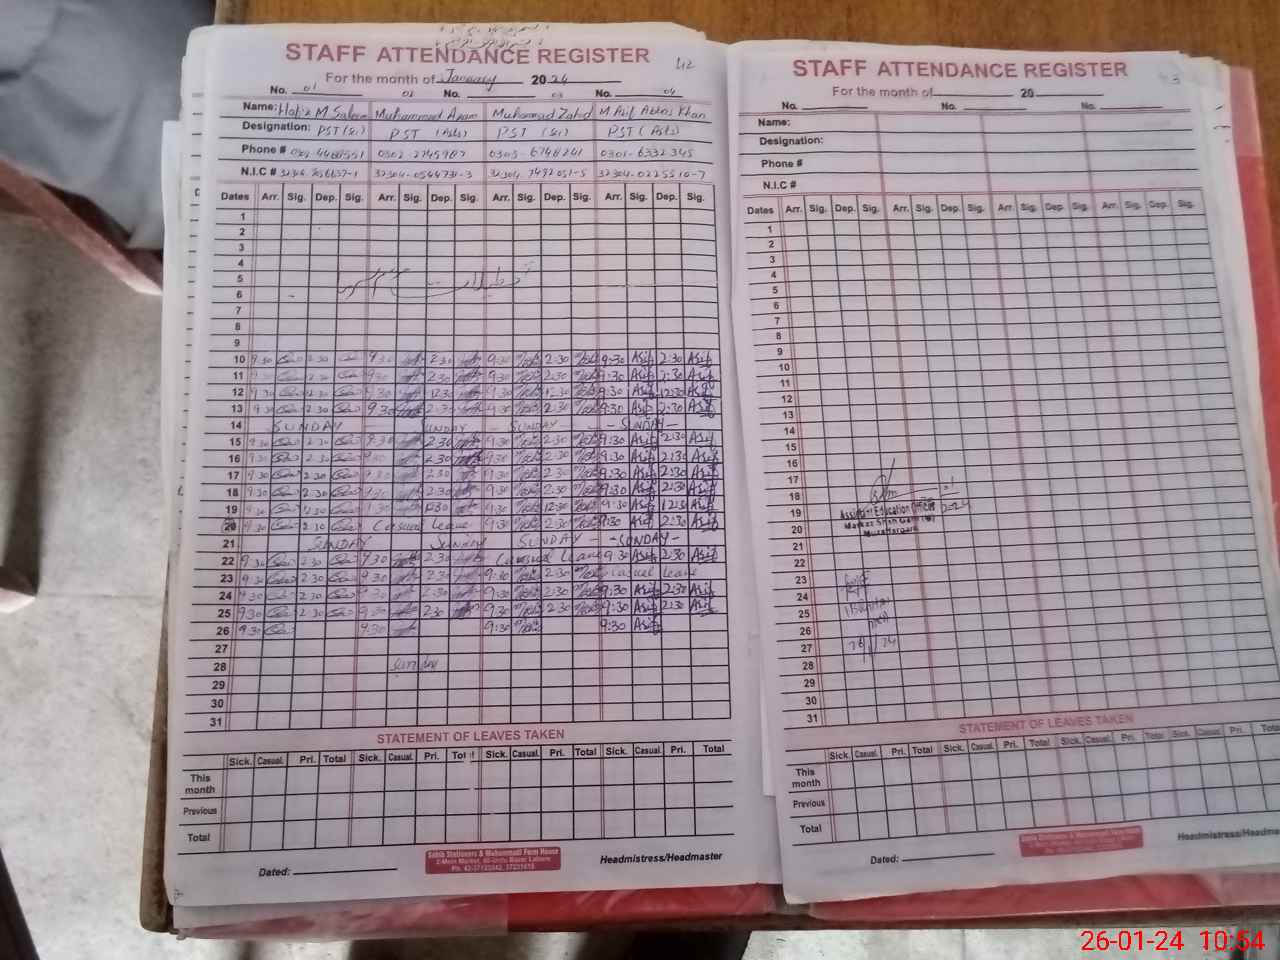 STAFF ATTENDANCE REGISTER
42
For the month of January 2024
No. 01 02 No. 03 No. 04
Name: Hafiz M Saleem Muhammad Azam Muhammad Zahid M Asif Abbas Khan
Designation: PST (Sr) PST (Asts) PST (Sr) PST (Asts)
Phone # 0302-2745987 0305-6748241 0301-6332345
N.I.C # 32304-0544731-3 32304-0225510-7
Dates Arr. Sig. Dep. Sig. Arr. Sig. Dep. Sig. Arr. Sig. Dep. Sig. Arr. Sig. Dep. Sig.
1
2
3
4
5
6
7
8
9
10 9:30 2:30 9:30 2:30 9:30 2:30 9:30 Asif 2:30 Asif
11 9:30 2:30 9:30 2:30 9:30 2:30 9:30 Asif 2:30 Asif
12 9:30 12:30 9:30 12:30 9:30 12:30 9:30 Asif 12:30 Asif
13 9:30 2:30 9:30 2:30 9:30 2:30 9:30 Asif 2:30 Asif
14 SUNDAY SUNDAY - SUNDAY - - SUNDAY -
15 9:30 2:30 9:30 2:30 9:30 2:30 9:30 Asif 2:30 Asif
16 9:30 2:30 9:30 2:30 9:30 2:30 9:30 Asif 2:30 Asif
17 9:30 2:30 9:30 2:30 9:30 2:30 9:30 Asif 2:30 Asif
18 9:30 2:30 9:30 2:30 9:30 2:30 9:30 Asif 2:30 Asif
19 9:30 12:30 9:30 12:30 9:30 12:30 9:30 Asif 12:30 Asif
20 9:30 2:30 Casual Leave 9:30 2:30 9:30 Asif 2:30 Asif
21 SUNDAY SUNDAY SUNDAY - - SUNDAY -
22 9:30 2:30 9:30 2:30 Casual Leave 9:30 Asif 2:30 Asif
23 9:30 2:30 9:30 2:30 9:30 2:30 Casual Leave
24 9:30 2:30 9:30 2:30 9:30 2:30 9:30 Asif 2:30 Asif
25 9:30 2:30 9:30 2:30 9:30 2:30 9:30 Asif 2:30 Asif
26 9:30 9:30 9:30 9:30 Asif
27
28 Sunday
29
30
31
STATEMENT OF LEAVES TAKEN
Sick. Casual. Pri. Total Sick. Casual. Pri. Total Sick. Casual. Pri. Total Sick. Casual. Pri. Total
This month
Previous
Total
Sabia Stationers & Muhammadi Form House
2-Main Market, 40-Urdu Bazar Lahore
Dated:
Headmistress/Headmaster
STAFF ATTENDANCE REGISTER
For the month of 20
No. No. No.
Name:
Designation:
Phone #
N.I.C #
Dates Arr. Sig. Dep. Sig. Arr. Sig. Dep. Sig. Arr. Sig. Dep. Sig. Arr. Sig. Dep. Sig.
1
2
3
4
5
6
7
8
9
10
11
12
13
14
15
16
17
18
19
20
21
22
23
24
25
26
27
28
29
30
31
Assistant Education Officer
Muzaffargarh
STATEMENT OF LEAVES TAKEN
Sick. Casual. Pri. Total Sick. Casual. Pri. Total Sick. Casual. Pri. Total Sick. Casual. Pri. Total
This month
Previous
Total
Dated:
Headmistress/Headma
26-01-24 10:54